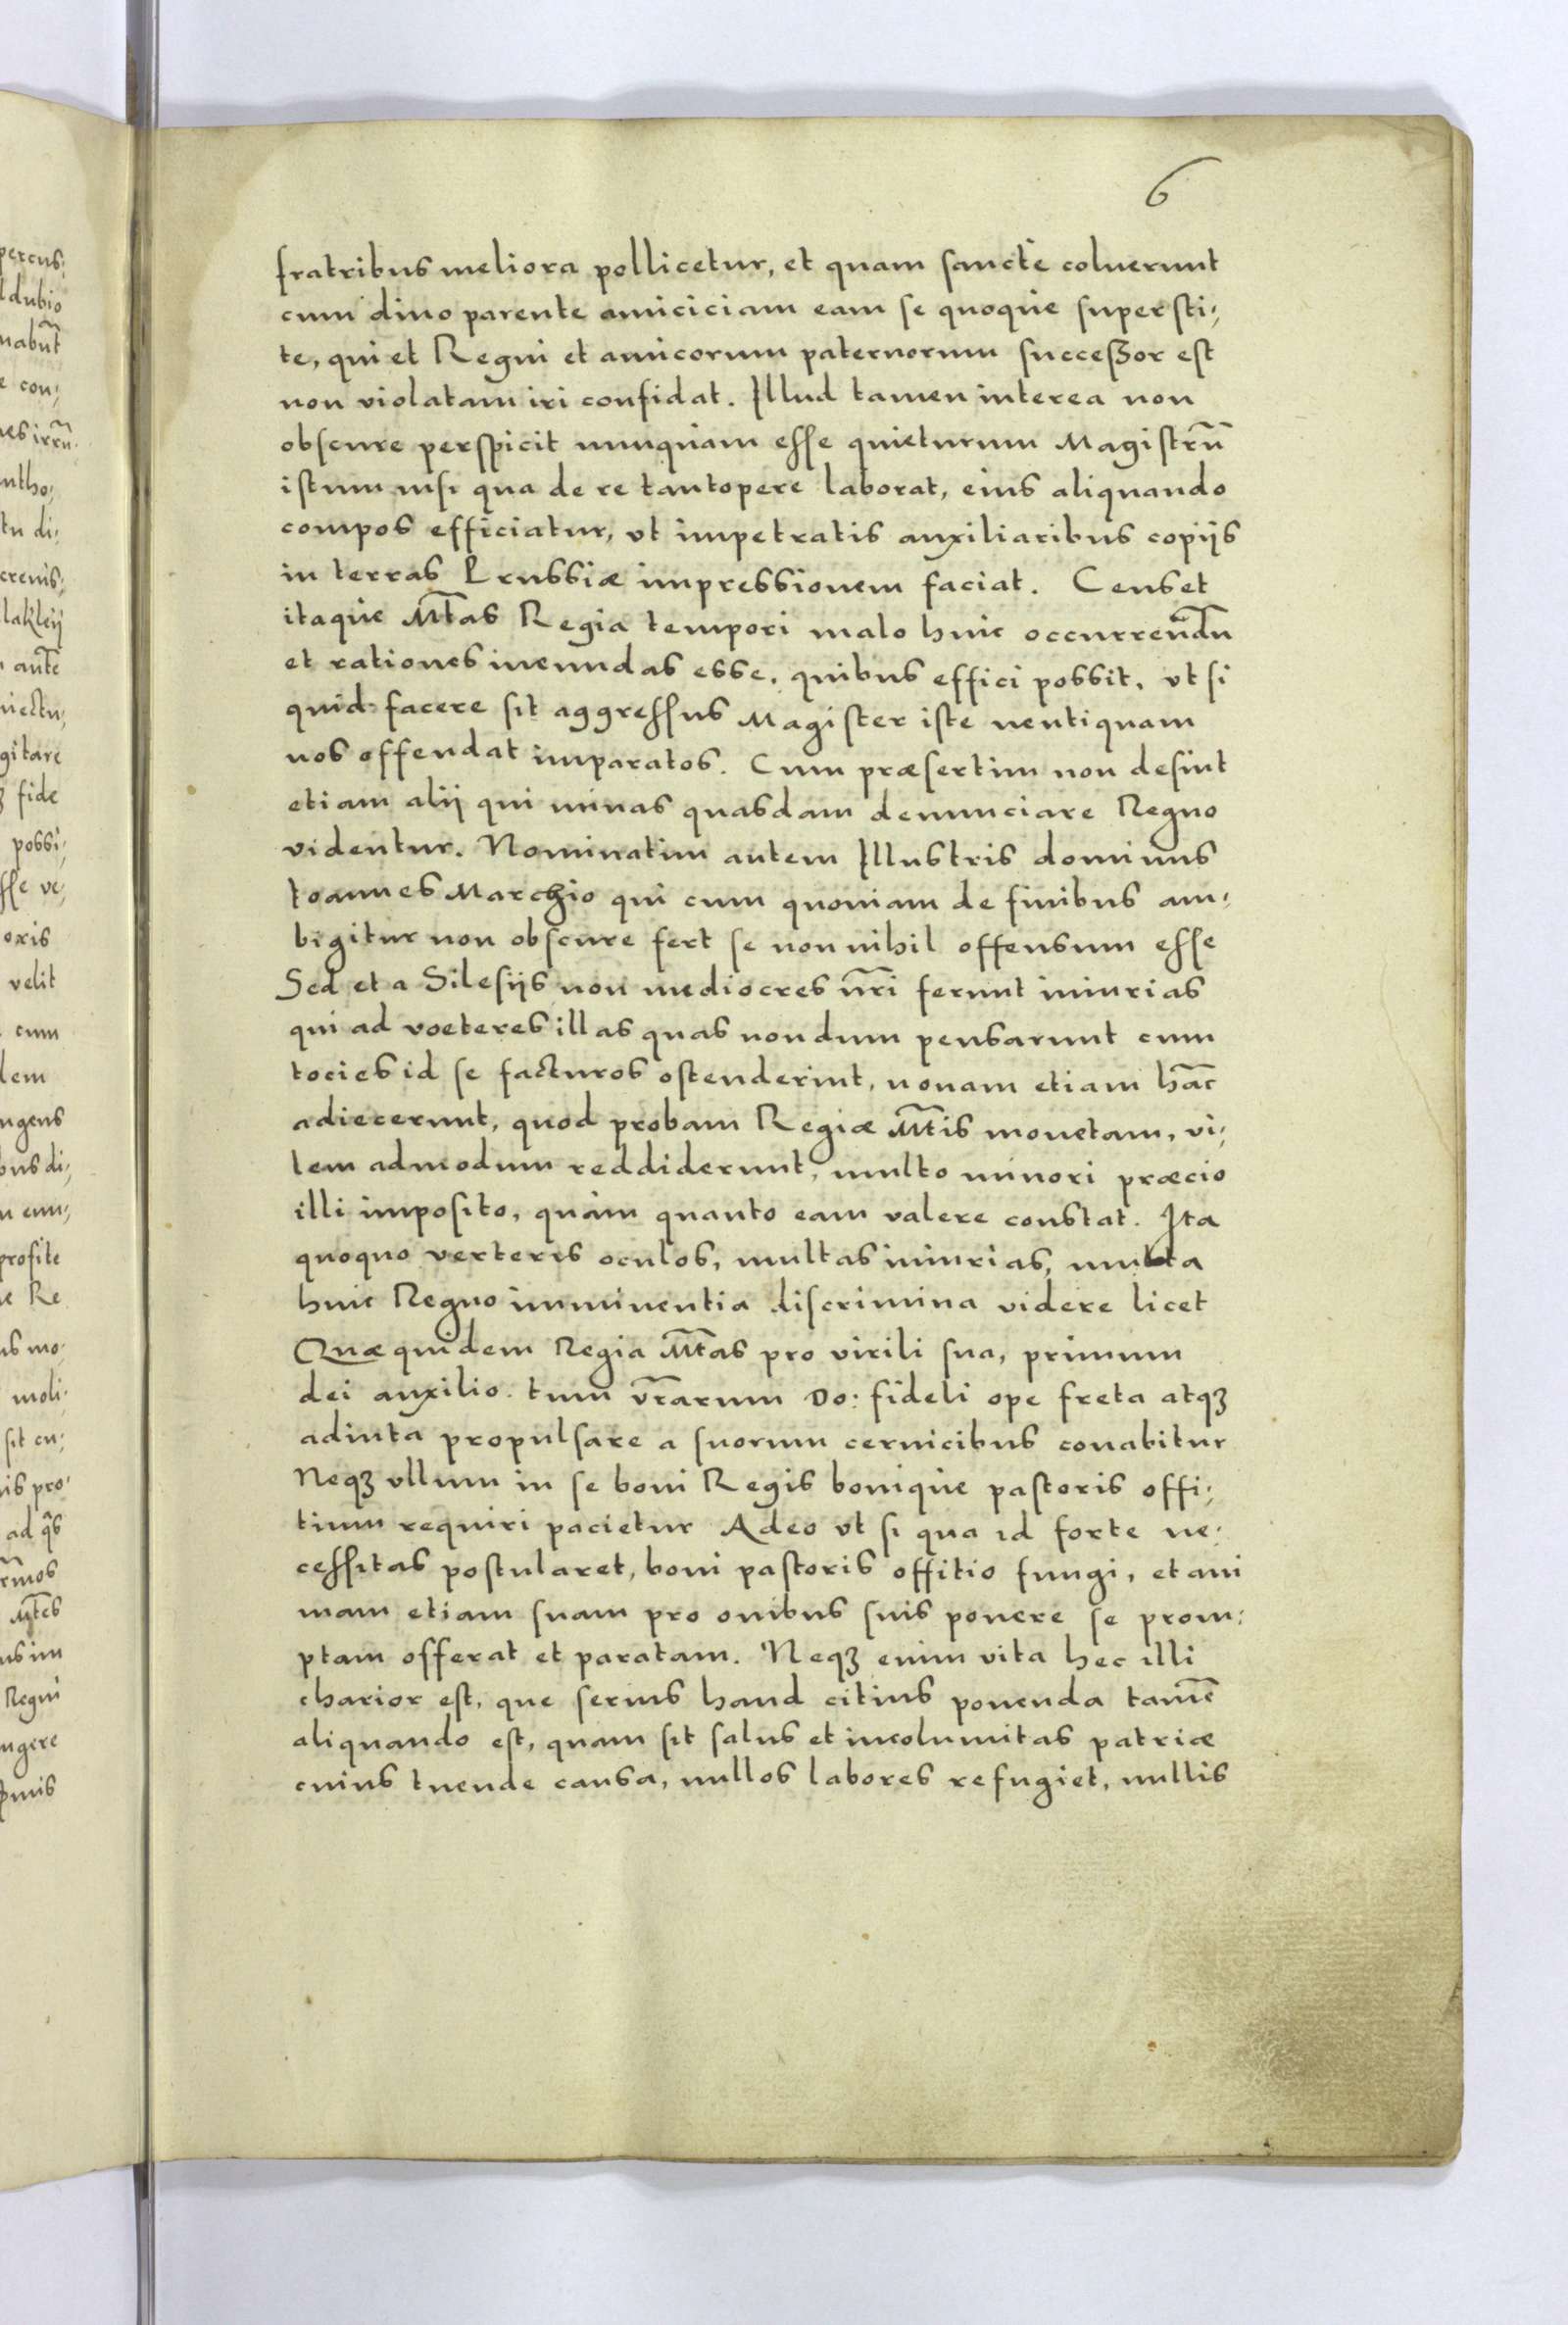 6
fratribus meliora pollicetur, et quam sanctè coluerunt
cum diuo parente amiciciam eam se quoque supersti,
te, qui et Regni et amicorum paternorum successor est
non violatam iri confidat. Illud tamen interea non
obscure perspicit nunquam esse quieturum Magistrū
istum nisi qua de re tantopere laborat, eius aliquando
compos efficiatur, vt impetratis auxiliaribus copijs
in terras Prussiæ impressionem faciat. Censet
itaque Mtas Regia tempori malo huic occurrendū
et rationes ineundas esse, quibus effici possit, vt si
quid facere sit aggressus Magister iste neutiquam
nos offendat imparatos. Cum præsertim non desint
etiam alij qui minas quasdam denunciare Regno
videntur. Nominatim autem Illustris dominus
Ioannes Marchio qui cum quoniam de finibus am,
bigitur non obscure fert se non nihil offensum esse
Sed et a Silesijs non mediocres nr̄i ferunt iniurias
qui ad voeteres illas quas nondum pensarunt cum
tocies id se facturos ostenderint, nouam etiam hāc
adiecerunt, quod probam Regiæ Mtis monetam, vi,
lem admodum reddiderunt, multo minori præcio
illi imposito, quàm quanto eam valere constat. Ita
quoquo verteris oculos, multas iniurias, multa
huic Regno imminentia discrimina videre licet
Quæ quidem Regia Mtas pro virili sua, primum
dei auxilio. tum vr̄arum Do: fideli ope freta atqȝ
adiuta propulsare a suorum ceruicibus conabitur
Neqȝ vllum in se boni Regis bonique pastoris offi,
tium requiri pacietur Adeo vt si qua id forte ne,
cessitas postularet, boni pastoris offitio fungi, et ani
mam etiam suam pro ouibus suis ponere se prom,
ptam offerat et paratam. Neqȝ enim vita hec illi
charior est, que serius haud citius ponenda tamē
aliquando est, quam sit salus et incolumitas patriæ
cuius tuende causa, nullos labores refugiet, nullis